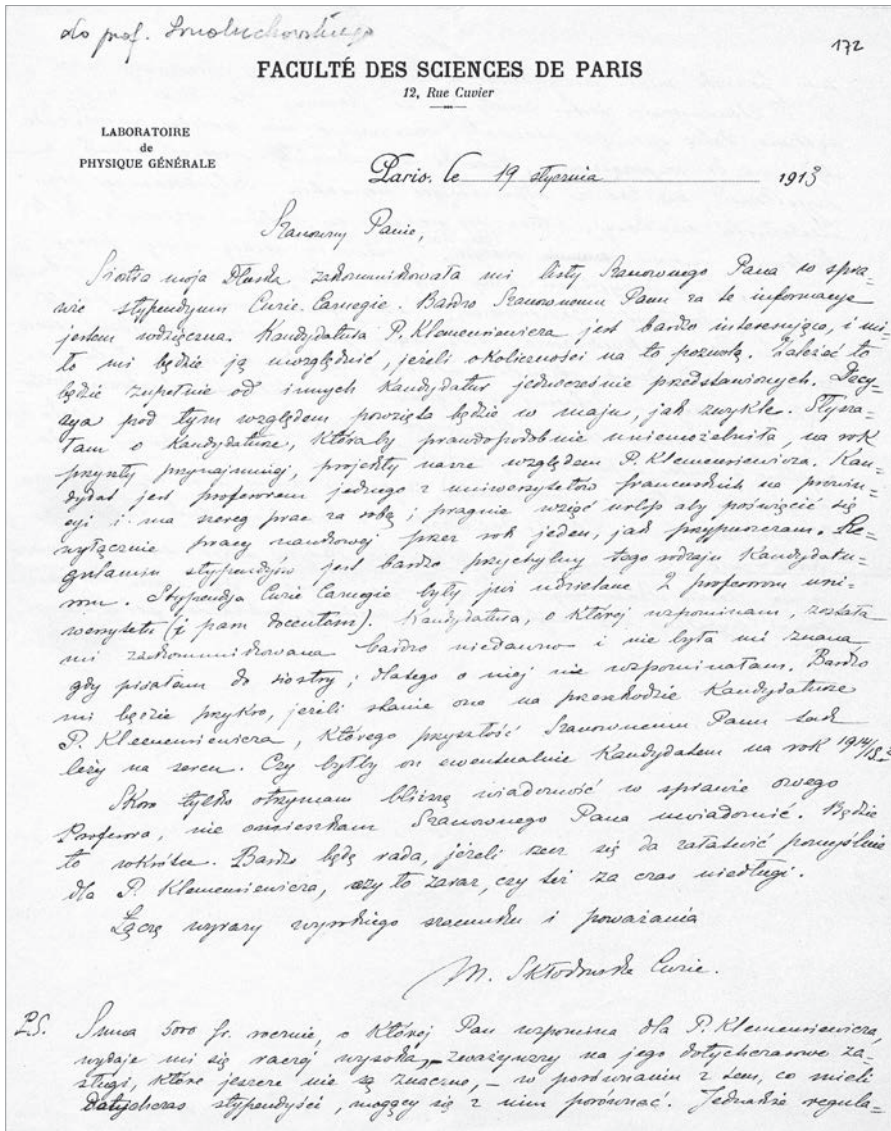 do prof. Smoluchowskiego
172
FACULTÉ DES SCIENCES DE PARIS
12, Rue Cuvier
LABORATOIRE
de
PHYSIQUE GÉNÉRALE
Paris, le 19 stycznia 1913
Szanowny Panie,
Siostra moja Dłuska zakomunikowała mi listy Szanownego Pana w spra=
wie stypendyum Curie-Carnegie. Bardzo Szanownemu Panu za te informacye
jestem wdzięczna. Kandydatura P. Klemensiewicza jest bardzo interesująca, i mi=
ło mi będzie ją uwzględnić, jeżeli okoliczności na to pozwolą. Zależeć to
będzie zupełnie od innych kandydatur jednocześnie przedstawionych. Decy=
zya pod tym względem powzięta będzie w maju, jak zwykle. Słysza=
łam o kandydaturze, któraby prawdopodobnie uniemożebniła, na rok
przyszły przynajmniej, projekty nasze względem P. Klemensiewicza. Kan=
dydat jest profesorem jednego z uniwersytetów francuskich na prowin=
cyi i ma szereg prac za sobą; pragnie wziąć urlop aby poświęcić się
wyłącznie pracy naukowej przez rok jeden, jak przypuszczam. Re=
gulamin stypendyów jest bardzo przychylny tego rodzaju kandydatu=
rom. Stypendja Curie Carnegie były już udzielane 2 profesorom uni=
wersytetu (i paru docentom). Kandydatura, o której wspominam, została
mi zakomunikowana bardzo niedawno i nie była mi znana
gdy pisałam do siostry; dlatego o niej nie wspominałam. Bardzo
mi będzie przykro, jeżeli stanie ona na przeszkodzie kandydaturze
P. Klemensiewicza, którego przyszłość Szanownemu Panu tak
leży na sercu. Czy byłby on ewentualnie kandydatem na rok 1914/15?
Skoro tylko otrzymam bliższą wiadomość w sprawie owego
Profesora, nie omieszkam Szanownego Pana uwiadomić. Będzie
to wkrótce. Bardzo będę rada, jeżeli rzecz się da załatwić pomyślnie
dla P. Klemensiewicza, czy to zaraz, czy też za czas niedługi.
Łączę wyrazy wysokiego szacunku i poważania
M. Skłodowska Curie.
P.S. Suma 5000 fr. rocznie, o której Pan wspomina dla P. Klemensiewicza,
wydaje mi się raczej wysoka, zważywszy na jego dotychczasowe za=
sługi, które jeszcze nie są znaczne, – w porównaniu z tem, co mieli
dotychczas stypendyści, mogący się z nim porównać. Jednakże regula=